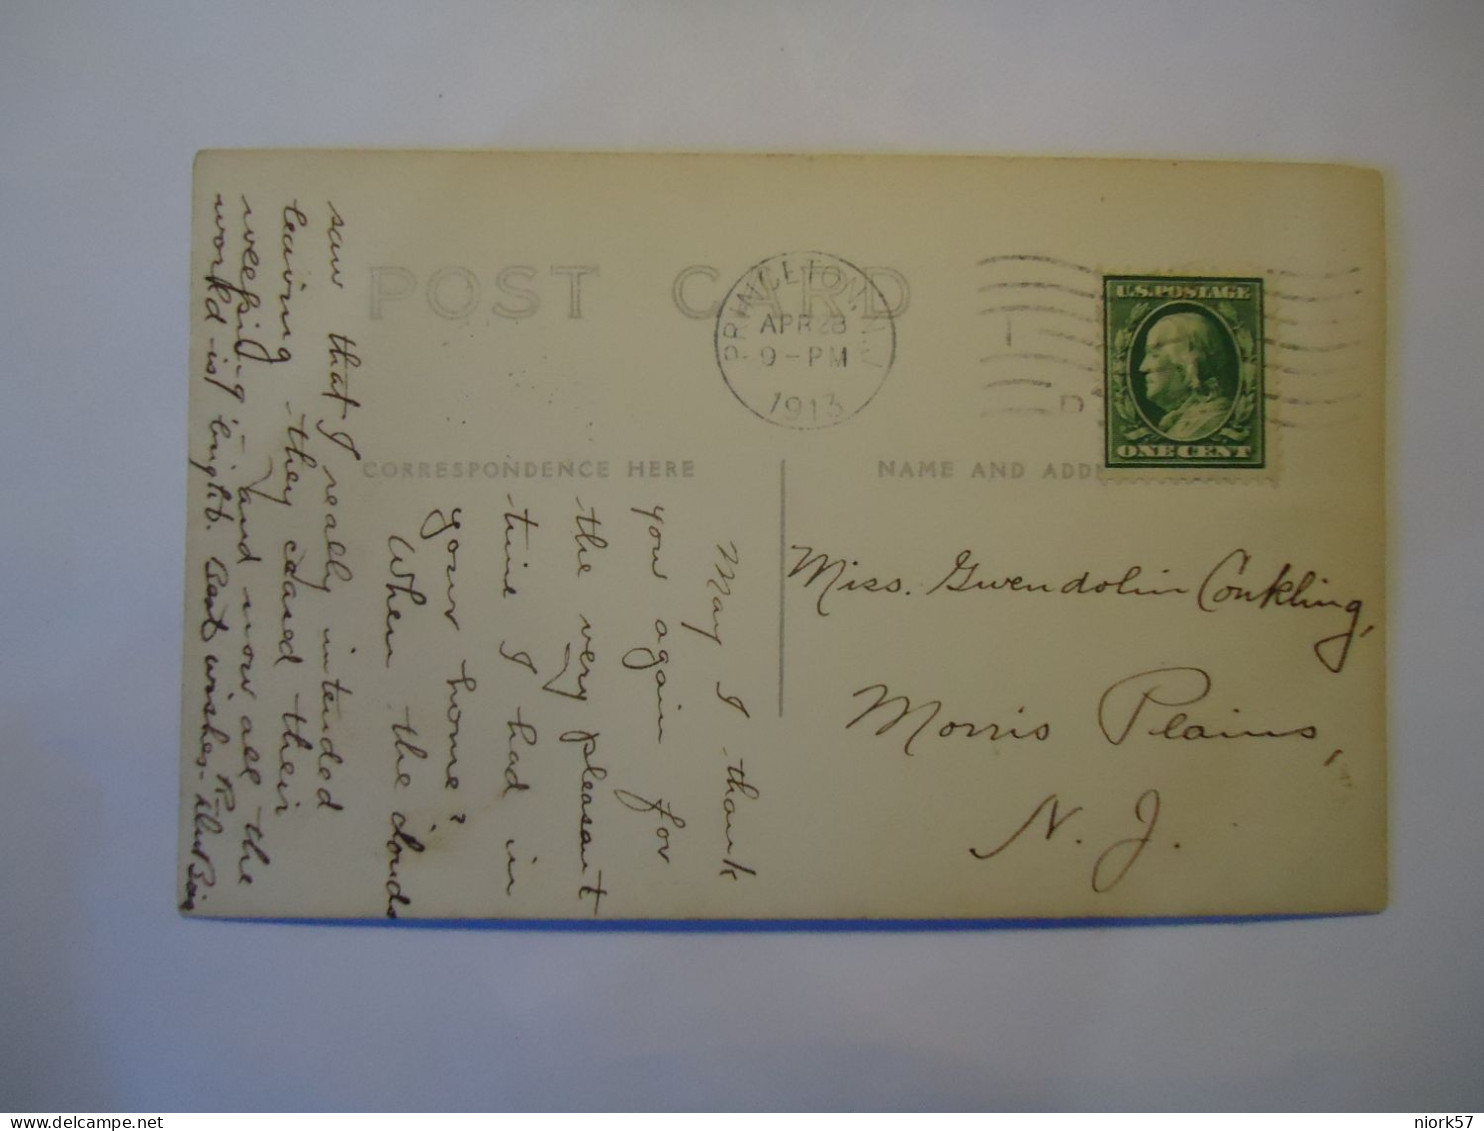 POST CARD
PRINCETON, N.J.
APR 28
9-PM
1913
U.S. POSTAGE
ONE CENT
CORRESPONDENCE HERE
NAME AND ADD
Miss. Gwendolin Conkling,
Morris Plains,
N. J.
May I thank
you again for
the very pleasant
time I had in
your home?
When the clouds
saw that I really intended
leaving they ceased their
weeping and now all the
world is bright. Best wishes-
niork57